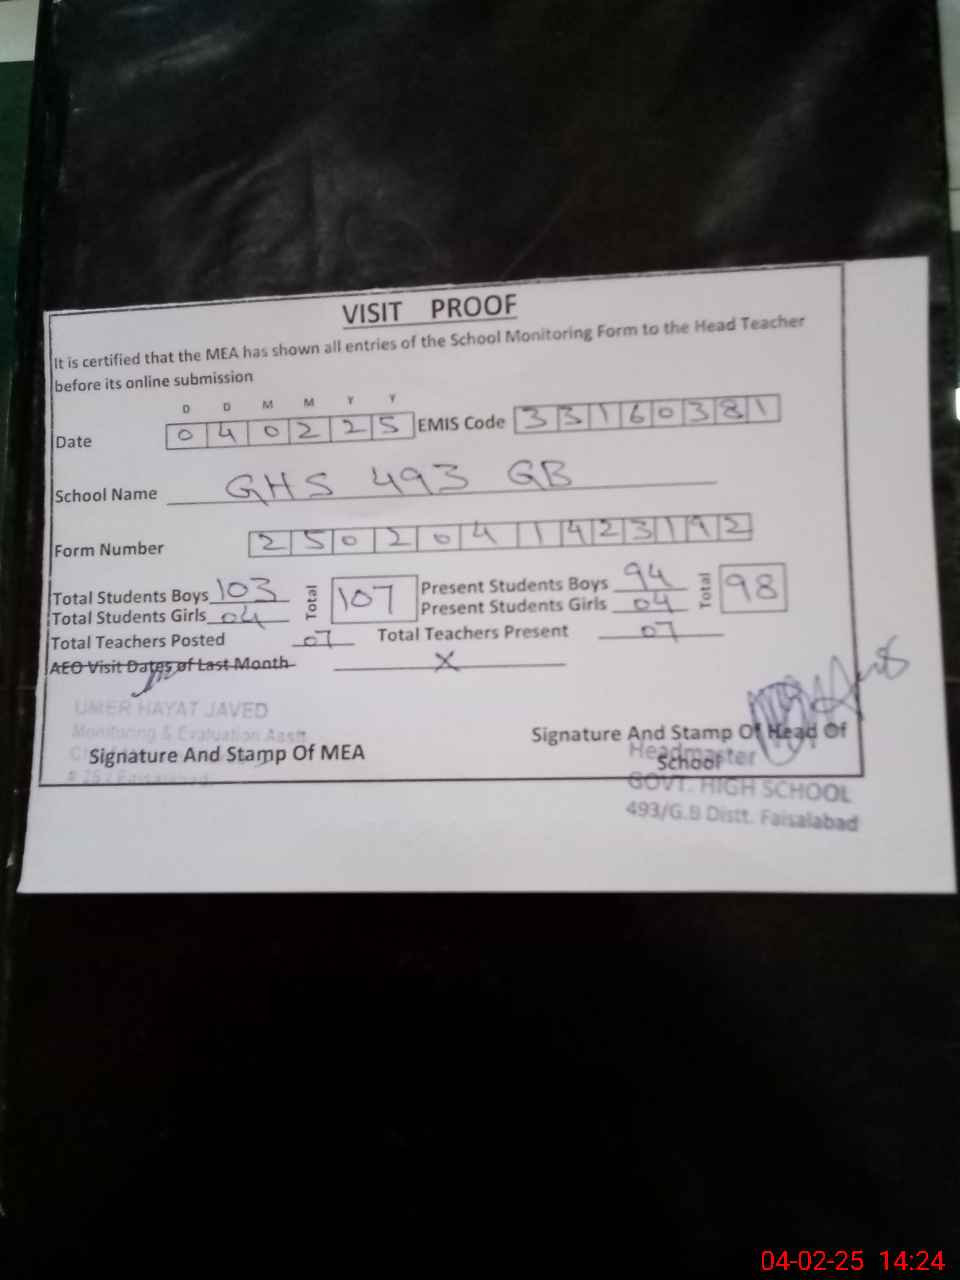 VISIT PROOF
It is certified that the MEA has shown all entries of the School Monitoring Form to the Head Teacher
before its online submission
D D M M Y Y
Date 0 4 0 2 2 5 EMIS Code 3 3 1 6 0 3 8 1
School Name GHS 493 GB
Form Number 2 5 0 2 0 4 1 4 2 3 1 9 2
Total Students Boys 103 Total 107 Present Students Boys 94 Total 98
Total Students Girls 04 Present Students Girls 04
Total Teachers Posted 07 Total Teachers Present 07
AEO Visit Dates of Last Month X
UMER HAYAT JAVED
Monitoring & Evaluation Asstt
Signature And Stamp Of MEA
Faisalabad
Signature And Stamp Of Head Of
School
Headmaster
GOVT. HIGH SCHOOL
493/G.B Distt. Faisalabad
04-02-25 14:24